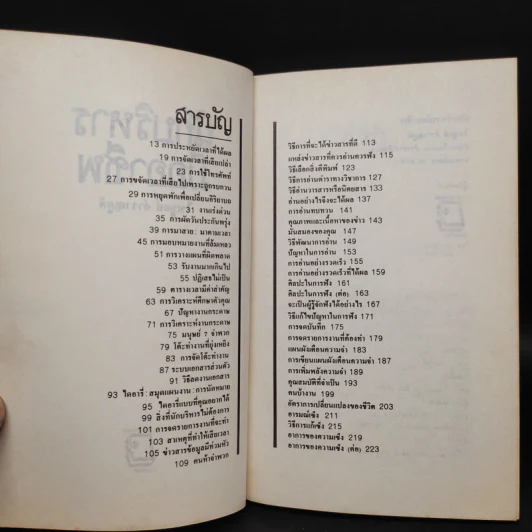 สารบัญ
13 การประหยัดเวลาที่ได้ผล
19 การจัดเวลาที่เสียเปล่า
23 การใช้โทรศัพท์
27 การขจัดเวลาที่เสียไปเพราะถูกรบกวน
29 การหยุดพักเพื่อเปลี่ยนอิริยาบถ
31 งานเร่งด่วน
35 การผัดวันประกันพรุ่ง
39 การมาสาย : มาตามเวลา
45 การมอบหมายงานที่ล้มเหลว
51 การวางแผนที่ผิดพลาด
53 รับงานมากเกินไป
55 ปฏิเสธไม่เป็น
59 ตารางเวลามีค่าสำคัญ
63 การวิเคราะห์ศึกษาตัวคุณ
67 ปัญหางานกระดาษ
71 การวิเคราะห์งานกระดาษ
75 มนุษย์ 7 จำพวก
79 โต๊ะทำงานที่ยุ่งเหยิง
83 การจัดโต๊ะทำงาน
87 ระบบเอกสารส่วนตัว
91 วิธีลดงานเอกสาร
93 ไดอารี่ : สมุดแผนงาน : การนัดหมาย
95 ไดอารี่แบบที่คุณอยากได้
99 สิ่งที่นักบริหารไม่ต้องการ
101 การจดรายการงานที่จะทำ
103 สาเหตุที่ทำให้เสียเวลา
105 ข่าวสารข้อมูลมีท่วมหัว
109 คนห้าจำพวก
วิธีการที่จะได้ข่าวสารที่ดี 113
แหล่งข่าวสารที่ควรอ่านควรฟัง 115
วิธีเลือกสิ่งตีพิมพ์ 123
วิธีการอ่านตำราทางวิชาการ 127
วิธีอ่านวารสารหรือนิตยสาร 133
อ่านอย่างไรจึงจะได้ผล 137
การอ่านทบทวน 141
คุณภาพและเนื้อหาของข่าว 143
มันสมองของคุณ 147
วิธีพัฒนาการอ่าน 149
ปัญหาในการอ่าน 151
การอ่านอย่างรวดเร็ว 155
การอ่านอย่างรวดเร็วที่ได้ผล 159
ศิลปะในการฟัง 161
ศิลปะในการฟัง (ต่อ) 163
จะเป็นผู้รู้จักฟังได้อย่างไร 167
วิธีแก้ไขปัญหาในการฟัง 171
การจดบันทึก 175
การจดรายการงานที่ต้องทำ 179
แผนผังเตือนความจำ 183
การเขียนแผนผังเตือนความจำ 187
การเพิ่มพลังความจำ 189
คุณสมบัติที่จำเป็น 193
คนบ้างาน 199
อัตราการเปลี่ยนแปลงของชีวิต 203
อารมณ์เซ็ง 211
วิธีการแก้เซ็ง 215
อาการของความเซ็ง 219
อาการของความเซ็ง (ต่อ) 223